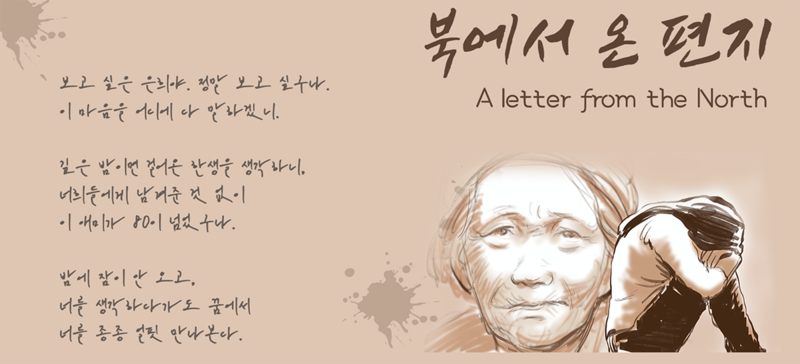 북에서 온 편지
A letter from the North
보고 싶은 은희야. 정말 보고 싶구나.
이 마음을 어디에 다 말하겠니.
깊은 밤이면 걸어온 한생을 생각하니,
너희들에게 남겨준 것 없이
이 애미가 80이 넘었구나.
밤에 잠이 안 오고,
너를 생각하다가도 꿈에서
너를 종종 얼핏 만나본다.